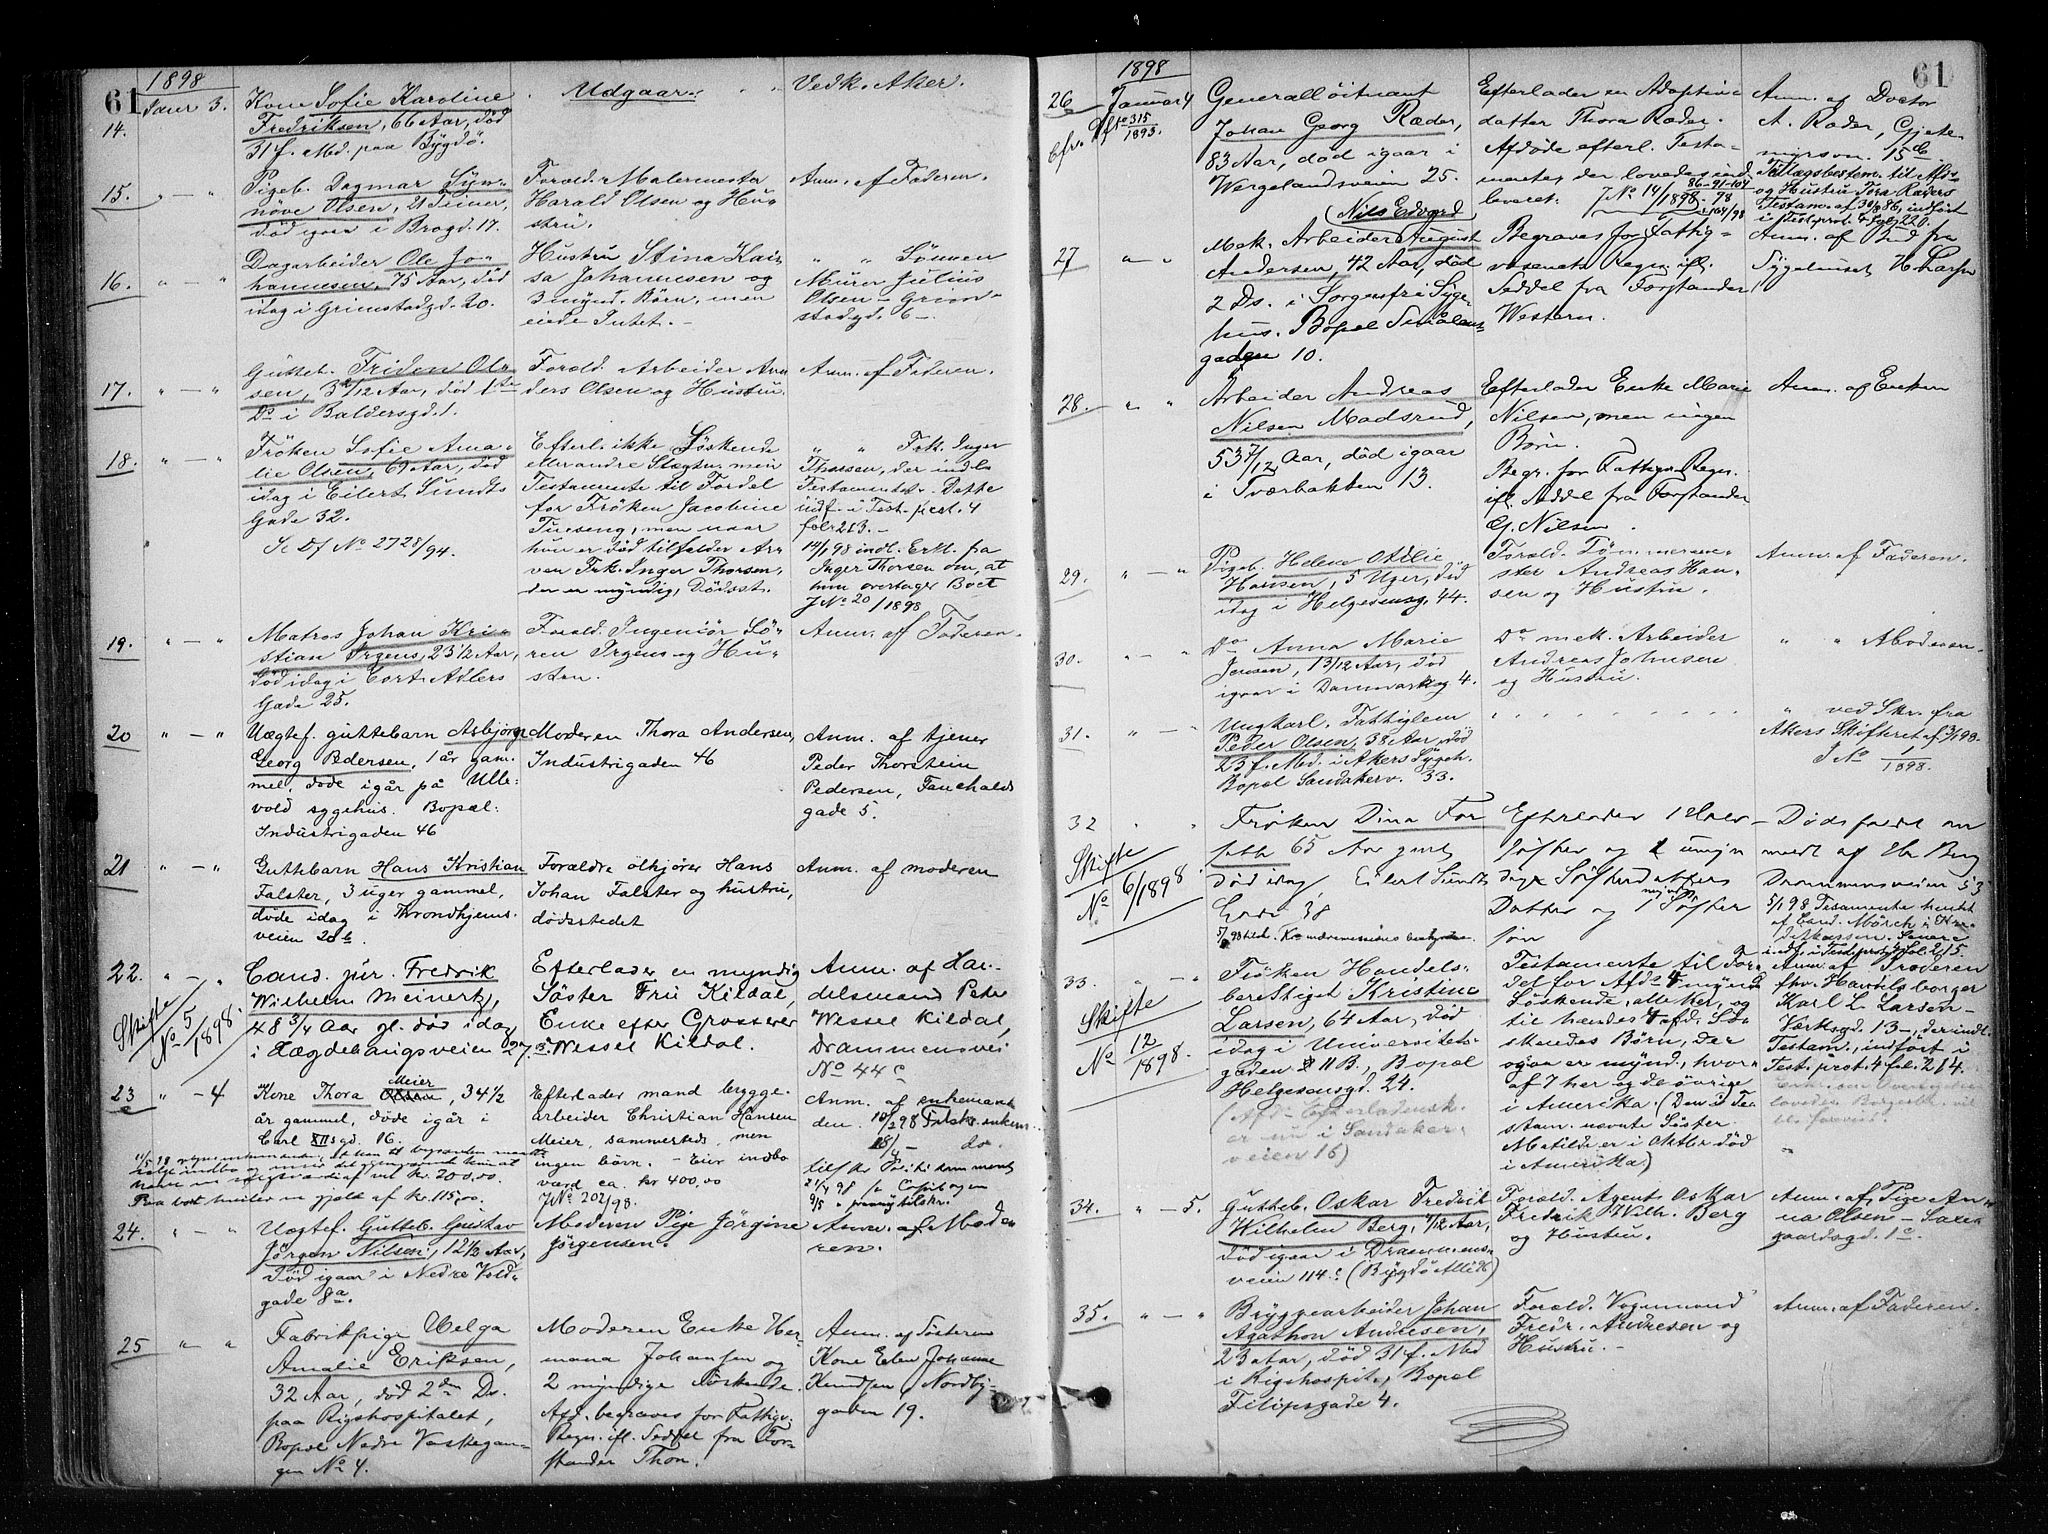 61
1898
14. Janr 3. Kone Sofie Karoline
Fredriksen, 66 Aar, död
31 f. Md. paa Bygdö.
Udgaar.
Vedk. Aker.
15. " — " Pigeb. Dagmar Syn-
növe Olsen, 21 Timer,
död igaar i Brogd. 17.
Foræld. Malermester
Harald Olsen og Hu-
stru.
Anm. af Faderen.
16. " — " Dagarbeider Ole Jo-
hannesen, 75 Aar, död
idag i Grimstadgd. 20.
Hustru Stina Kai-
sa Johannesen og
3 mynd. Börn, men
eiede Intet. —
" " Sönnen
Murer Julius
Olsen — Grim-
stadgd. 6 —.
17. " — " Gutteb. Fridon Ol-
sen, 3 /12 Aar, död 1ste
Ds i Baldersgd. 1.
Foræld. Arbeider An-
ders Olsen og Hustru.
Anm. af Faderen.
18. " — " Fröken Sofie Ama-
lie Olsen, 69 Aar, död
idag i Eilert Sundts
Gade 32.
Se Df No 2728/94.
Efterl. ikke Söskende
eller andre Slægtn. men
Testamente til Fordel
for Fröken Jacobine
Tueseng, men naar
hun er död tilfalder Ar-
ven Frk. Inger Thorsen,
der er myndig, Dödsst.
" " Frk. Inger
Thorsen, der indl.
Testamentet. Dette
indf. i Test. prot. 4
fol. 213. —
14/1 98 indl. Erkl. fra
Inger Thorsen om, at
hun overtager Boet
J No 20/1898
19. " — " Matros Johan Kri-
stian Irgens, 23 1/2 Aar,
död idag i Cort Adlers
Gade 25.
Foræld. Ingeniör Sö-
ren Irgens og Hu-
stru.
Anm. af Faderen.
20 " — " Uægtef. guttebarn Asbjörn
Georg Pedersen, 1 år gam-
mel, döde igår på Ulle-
vold sygehus. Bopæl:
Industrigaden 46
Moderen Thora Andersen,
Industrigaden 46
Anm. af tjener
Peder Thorstein
Pedersen, Fauchalds
gade 5.
21 " — " Guttebarn Hans Kristian
Falster, 3 uger gammel,
döde idag i Throndhjems-
veien 20 b.
Forældre ölkjörer Hans
Johan Falster og hustru,
dödsstedet
Anm. af moderen
22. " — "
Skifte
No 5/1898.
Cand. jur. Fredrik
Wilhelm Meinertz,
48 3/4 Aar gl. död idag
i Hægdehaugsveien 27.
Efterlader en myndig
Söster Fru Kildal,
Enke efter Grosserer
Wessel Kildal.
Anm. af Han-
delsmand Peter
Wessel Kildal,
Drammensvei
No 44 c
23 " — 4 Kone Thora Meier, 34 1/2
år gammel, döde igår i
Carl XIIsgd. 16.
Efterlader mand brygge-
arbeider Christian Hansen
Meier, sammesteds, men
ingen börn. — Eier indbo
værd ca. kr 400,00
J No 202/98.
Anm. af enkemand-
den.
24. " — " Uægtef. Gutteb. Gustav
Jörgen Nilsen, 12 1/2 Aar,
död igaar i Nedre Vold-
gade 8 a.
Moderen Pige Jörgine
Jörgensen.
Anm. af Mode-
ren.
25 " " Fabrikpige Helga
Amalie Eriksen,
32 Aar, död 2den Ds.
paa Rigshospitalet,
Bopæl Nedre Vaskegan-
gen No 4.
Moderen Enke Her-
mana Johansen og
2 myndige Söskende.
Afd. begraves for Fattigv.
Regn. ifl. Seddel fra For-
stander Thon.
Anm. af Sösteren
Kone Elen Johanne
Knudsen, Nordby-
gaden 19.
61
1898
26 Januar 4
cfr. Df No 315/1893.
Generallöitnant
Johan Georg Ræder,
83 Aar, död igaar i
Wergelandsveien 25.
Efterlader en Adoptiv-
datter Thora Ræder.
Afdöde efterl. Testa-
menter, der loves ind-
leveret.
J No 14/1898
Anm. af Doctor
A. Ræder, Gjete-
myrsvn. 15 b
Tillægsbestem. til Afds
og Hustru Tora Ræders
Testam. af 30/ 86, indfört
i Test. prot. 4 fol. 220.
27 " — " Mek. Arbeider (Nils Edvard) August
Andersen, 42 Aar, död
2 Ds. i Sorgenfri Syge-
hus. Bopæl Smålens-
gaden 10.
Begraves for Fattig-
væsenets Regn. ifl.
Seddel fra Forstander
Western.
Anm. af Bud fra
Sygehuset H. Larsen
28. " " Arbeider Andreas
Nilsen Madsrud,
53 7/12 Aar, död igaar
i Tværbakken 13.
Efterlader Enke Marie
Nilsen, men ingen
Börn.
Begr. for Fattigv. Regn.
ifl. Seddel fra Forstander
G. Nilsen.
Anm. af Enken
29. " — " Pigeb. Helena Otilie
Hansen, 5 Uger, död
idag i Helgesensg. 44.
Foræld. Tömmerme-
ster Andreas Han-
sen og Hustru.
Anm. af Faderen.
30. " — " Do Anna Marie
Jensen, 1 3/12 Aar, död
igaar i Danmarksg 4.
Do mek. Arbeider
Andreas Johnsen
og Hustru.
" " Moderen.
31. " — " Ungkarl. Fattiglem
Peder Olsen, 38 Aar, död
23 f. Md. i Akers Sygeh.
Bopæl Sandakerv. 33.
" ved Skr. fra
Akers Skifteret af 3/1 98.
J No 1/1898.
32 " "
Skifte
No 6/1898.
Fröken Dina For
65 Aar gml
död idag, Eilert Sundts
Gade 38
Efterlader 1 Halv-
söster og umyn-
dige Söster
Datter og 1 Söster
sön
Dödsfaldet an-
meldt af
Drammensveien 53
5/1 98 Testamente hentet
33. " — "
Skifte
No 12/1898.
Fröken Handels-
berettiget Kristine
Larsen, 64 Aar, död
idag i Universitets-
gaden 11 B., Bopæl
Helgesensgd. 24.
(Afds Efterladensk.
er nu i Sandaker-
veien 16)
Testamente til For-
del for Afds 4 myndige
Söskende, alle her, og
til hendes 4 afd. Sö-
skendes Börn, der
ogsaa er mynd., hvor-
af 7 her og de övrige
i Amerika. (Den i Te-
stam. nævnte Söster
Matilde er i Oktbr död
i Amerika.)
Anm. af Broderen
fhv. Handelsborger
Karl L. Larsen —
Værksgd. 13 —, der indl.
Testam., indfört i
Test. prot. 4 fol. 214.
34. " — 5. Gutteb. Oskar Fredrik
Wilhelm Berg, /12 Aar,
död igaar i Drammens-
veien 114 c (Bygdö Allé)
Foræld. Agent Oskar
Fredrik Wilh. Berg
og Hustru.
Anm. af Pige An-
na Olsen — Saxe-
gaardsgd. 1 c.
35. " — " Bryggearbeider Johan
Agathon Andresen,
23 Aar, död 31 f. Md
i Rigshospit., Bopæl
Filipsgade 4.
Foræld. Vognmand
Fredr. Andresen og
Hustru. —
Anm. af Faderen.